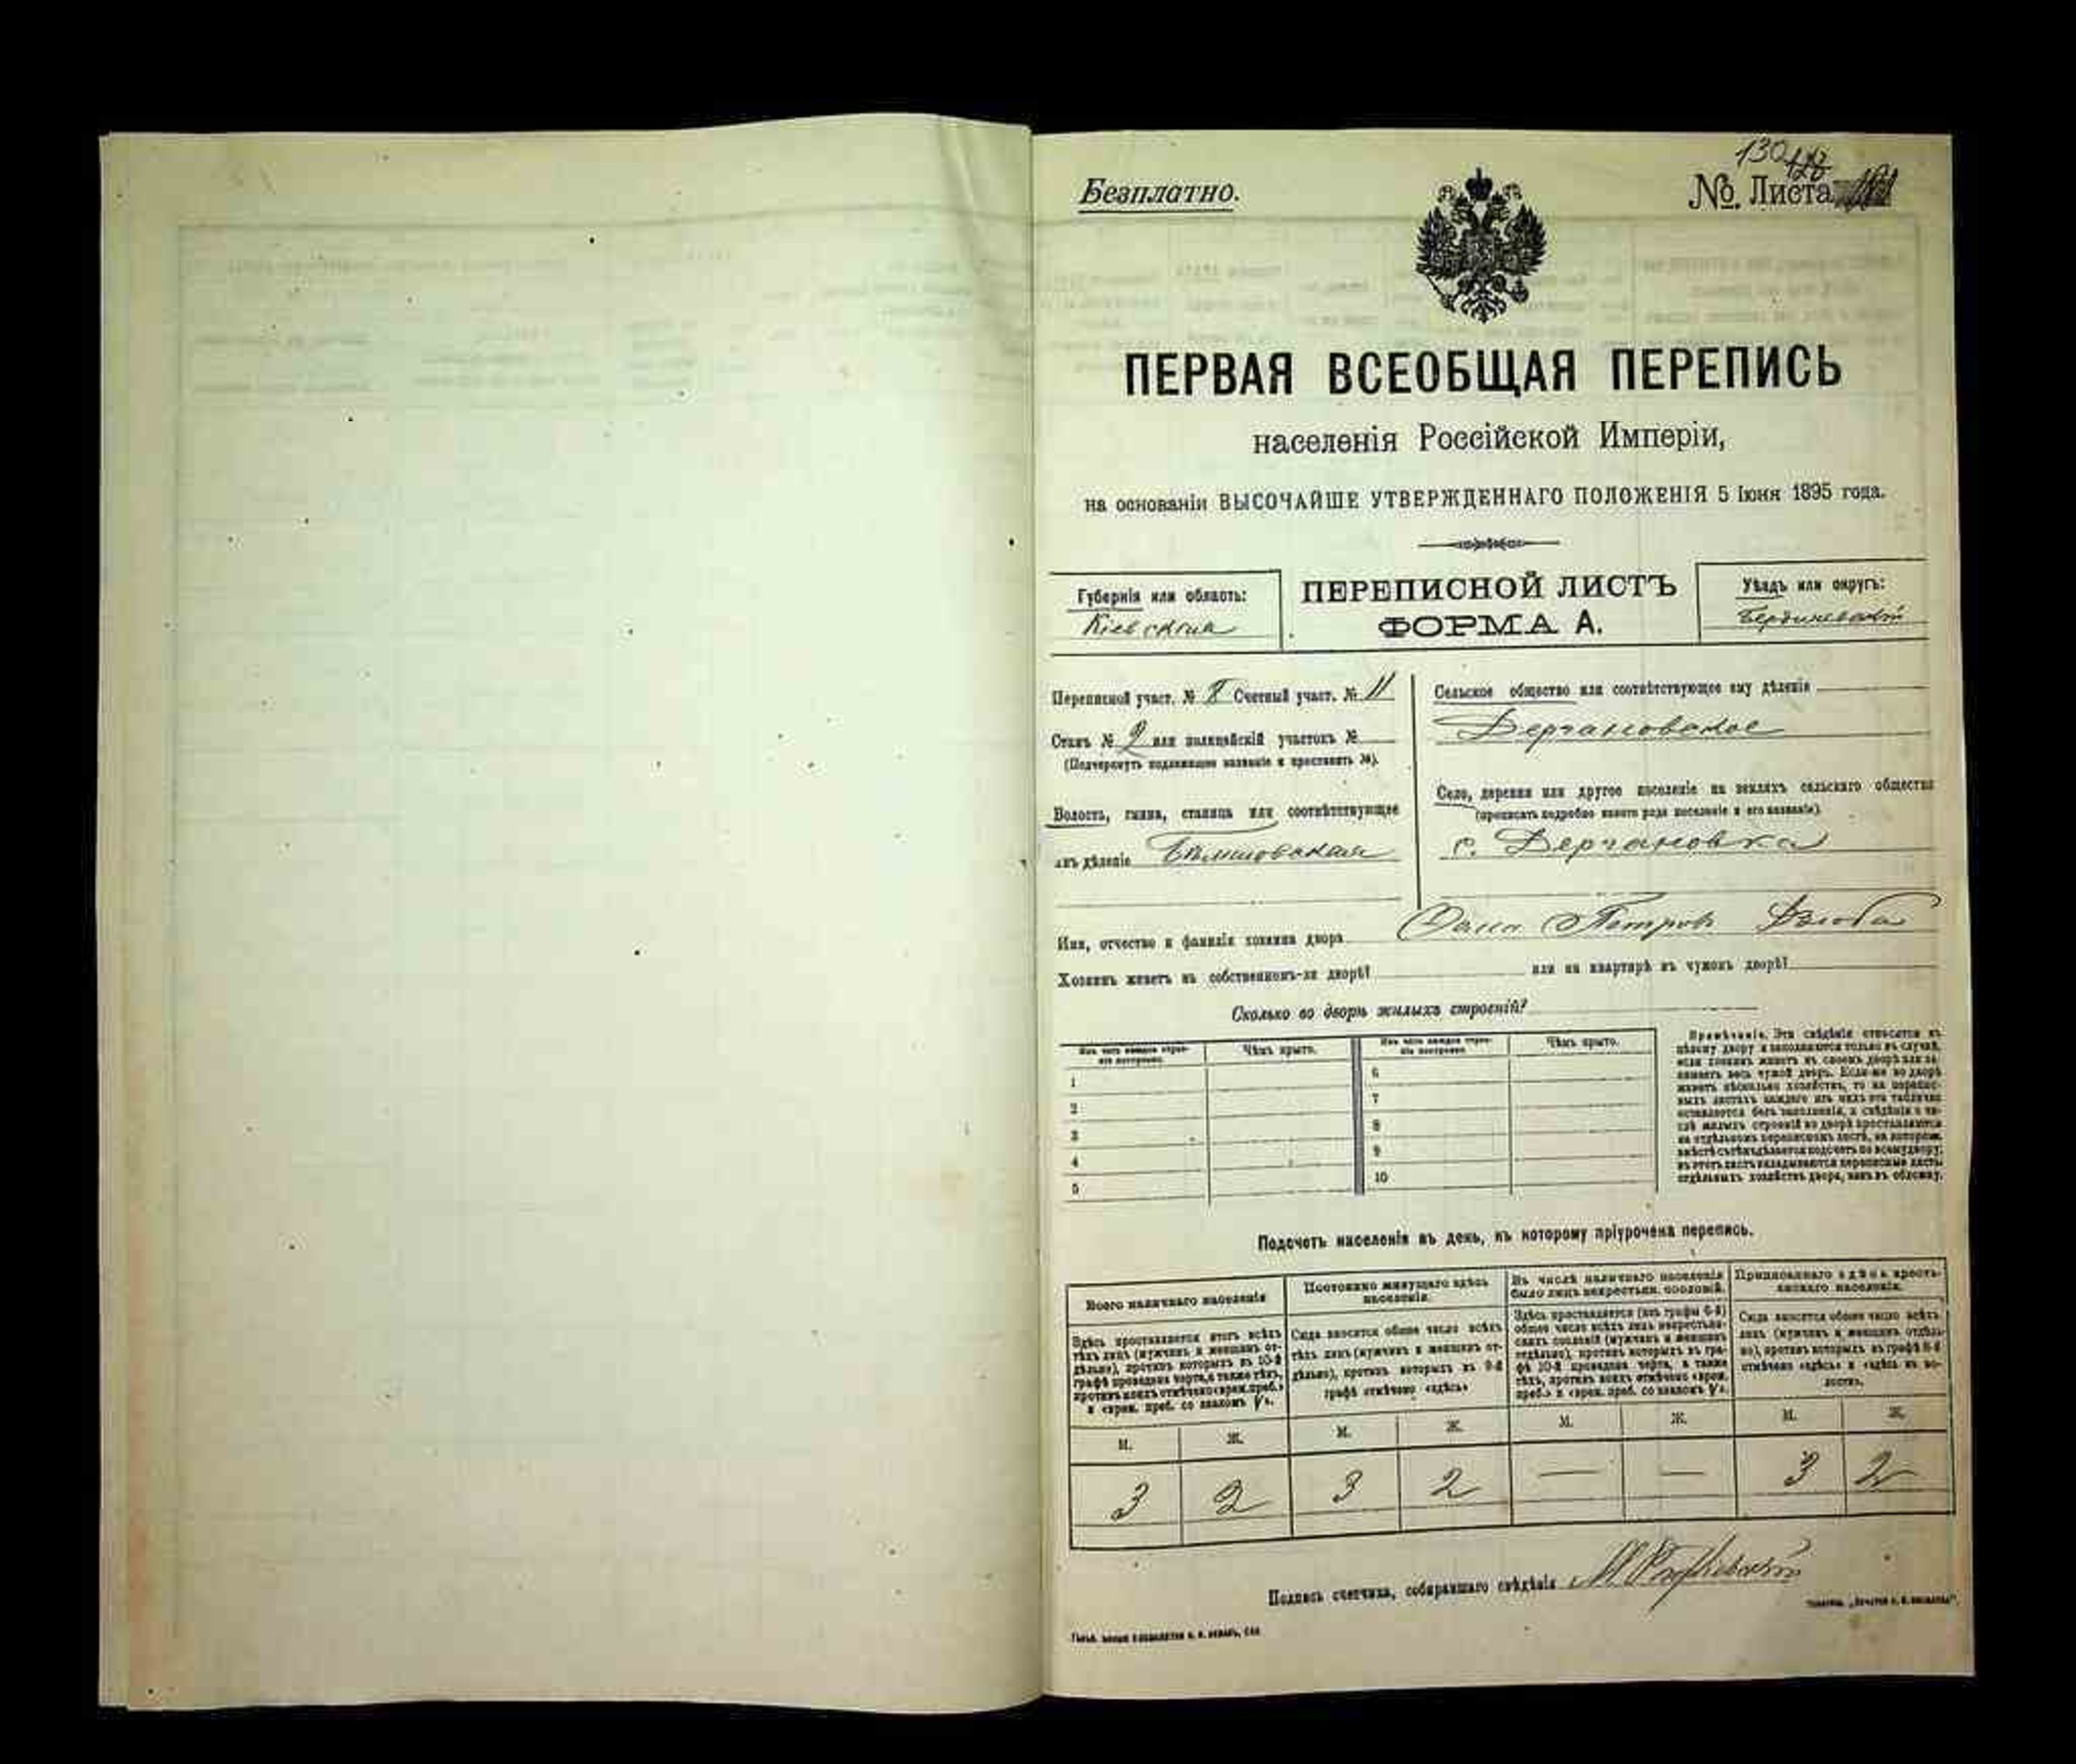 130
Безплатно.
№. Листа
ПЕРВАЯ ВСЕОБЩАЯ ПЕРЕПИСЬ
населенія Россійской Имперіи,
на основаніи ВЫСОЧАЙШЕ УТВЕРЖДЕННАГО ПОЛОЖЕНІЯ 5 Іюня 1895 года.
Губернія или область:
Кіевская
ПЕРЕПИСНОЙ ЛИСТЪ
ФОРМА А.
Уѣздъ или округъ:
Бердичевскій
Переписной участ. № Счетный участ. № 11
Станъ № 2 или полицейскій участокъ №
(Подчеркнуть подлежащее названіе и проставить №).
Волость, гмина, станица или соотвѣтствующее
имъ дѣленіе
Сельское общество или соотвѣтствующее ему дѣленіе
Дергановское
Село, деревня или другое поселеніе на земляхъ сельскаго общества
(прописать подробно какого рода поселеніе и его названіе).
с. Дергановка
Имя, отчество и фамилія хозяина двора Петровъ
Хозяинъ живетъ въ собственномъ-ли дворѣ? или на квартирѣ въ чужомъ дворѣ?
Сколько во дворѣ жилыхъ строеній?
Изъ чего каждое строе-
ніе построено. Чѣмъ крыто. Изъ чего каждое строе-
ніе построено. Чѣмъ крыто.
1 6
2 7
3 8
4 9
5 10
Примѣчаніе. Эти свѣдѣнія относятся къ
цѣлому двору и заполняются только въ случаѣ,
если хозяинъ живетъ въ своемъ дворѣ или за-
нимаетъ весь чужой дворъ. Если-же во дворѣ
живетъ нѣсколько хозяйствъ, то на перепис-
ныхъ листахъ каждаго изъ нихъ эта табличка
оставляется безъ заполненія, а свѣдѣнія о чи-
слѣ жилыхъ строеній во дворѣ проставляются
на отдѣльномъ переписномъ листѣ, на которомъ
вмѣстѣ съ тѣмъ дѣлается подсчетъ по всему двору;
въ этотъ листъ вкладываются переписные листы
отдѣльныхъ хозяйствъ двора, какъ въ обложку.
Подсчетъ населенія въ день, къ которому пріурочена перепись.
Всего наличнаго населенія
Здѣсь проставляется итогъ всѣхъ
тѣхъ лицъ (мужчинъ и женщинъ от-
дѣльно), противъ которыхъ въ 10-й
графѣ проведена черта, а также тѣхъ,
противъ коихъ отмѣчено «врем. преб.»
и «врем. преб. со знакомъ V».
Постоянно живущаго здѣсь
населенія.
Сюда вносится общее число всѣхъ
тѣхъ лицъ (мужчинъ и женщинъ от-
дѣльно), противъ которыхъ въ 9-й
графѣ отмѣчено «здѣсь»
Въ числѣ наличнаго населенія
было лицъ некрестьян. сословій.
Здѣсь проставляется (изъ графы 6-й)
общее число всѣхъ лицъ некрестьян-
скихъ сословій (мужчинъ и женщинъ
отдѣльно), противъ которыхъ въ гра-
фѣ 10-й проведена черта, а также
тѣхъ, противъ коихъ отмѣчено «врем.
преб.» и «врем. преб. со знакомъ V».
Приписаннаго здѣсь кресть-
янскаго населенія.
Сюда вносится общее число всѣхъ
лицъ (мужчинъ и женщинъ отдѣль-
но), противъ которыхъ въ графѣ 8-й
отмѣчено «здѣсь» и «здѣсь въ во-
лости».
М. Ж. М. Ж. М. Ж. М. Ж.
3 2 3 2 — — 3 2
Подпись счетчика, собиравшаго свѣдѣнія